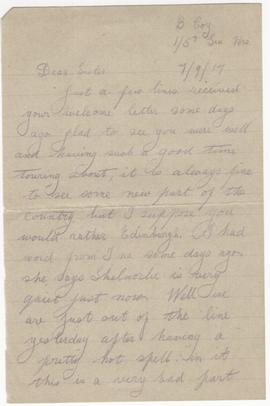 B Coy
1/5th
7/9/17
Dear Sister
Just a few lines received
your welcome letter some days
ago glad to see you were well
and having such a good time
touring about, it is always fine
to see some new part of the
country but I suppose you
would rather Edinburgh. I had
word from some days ago
she says is very
quiet just now. Well we
are just out of the line
yesterday after having a
pretty hot spell in it
this is a very bad part